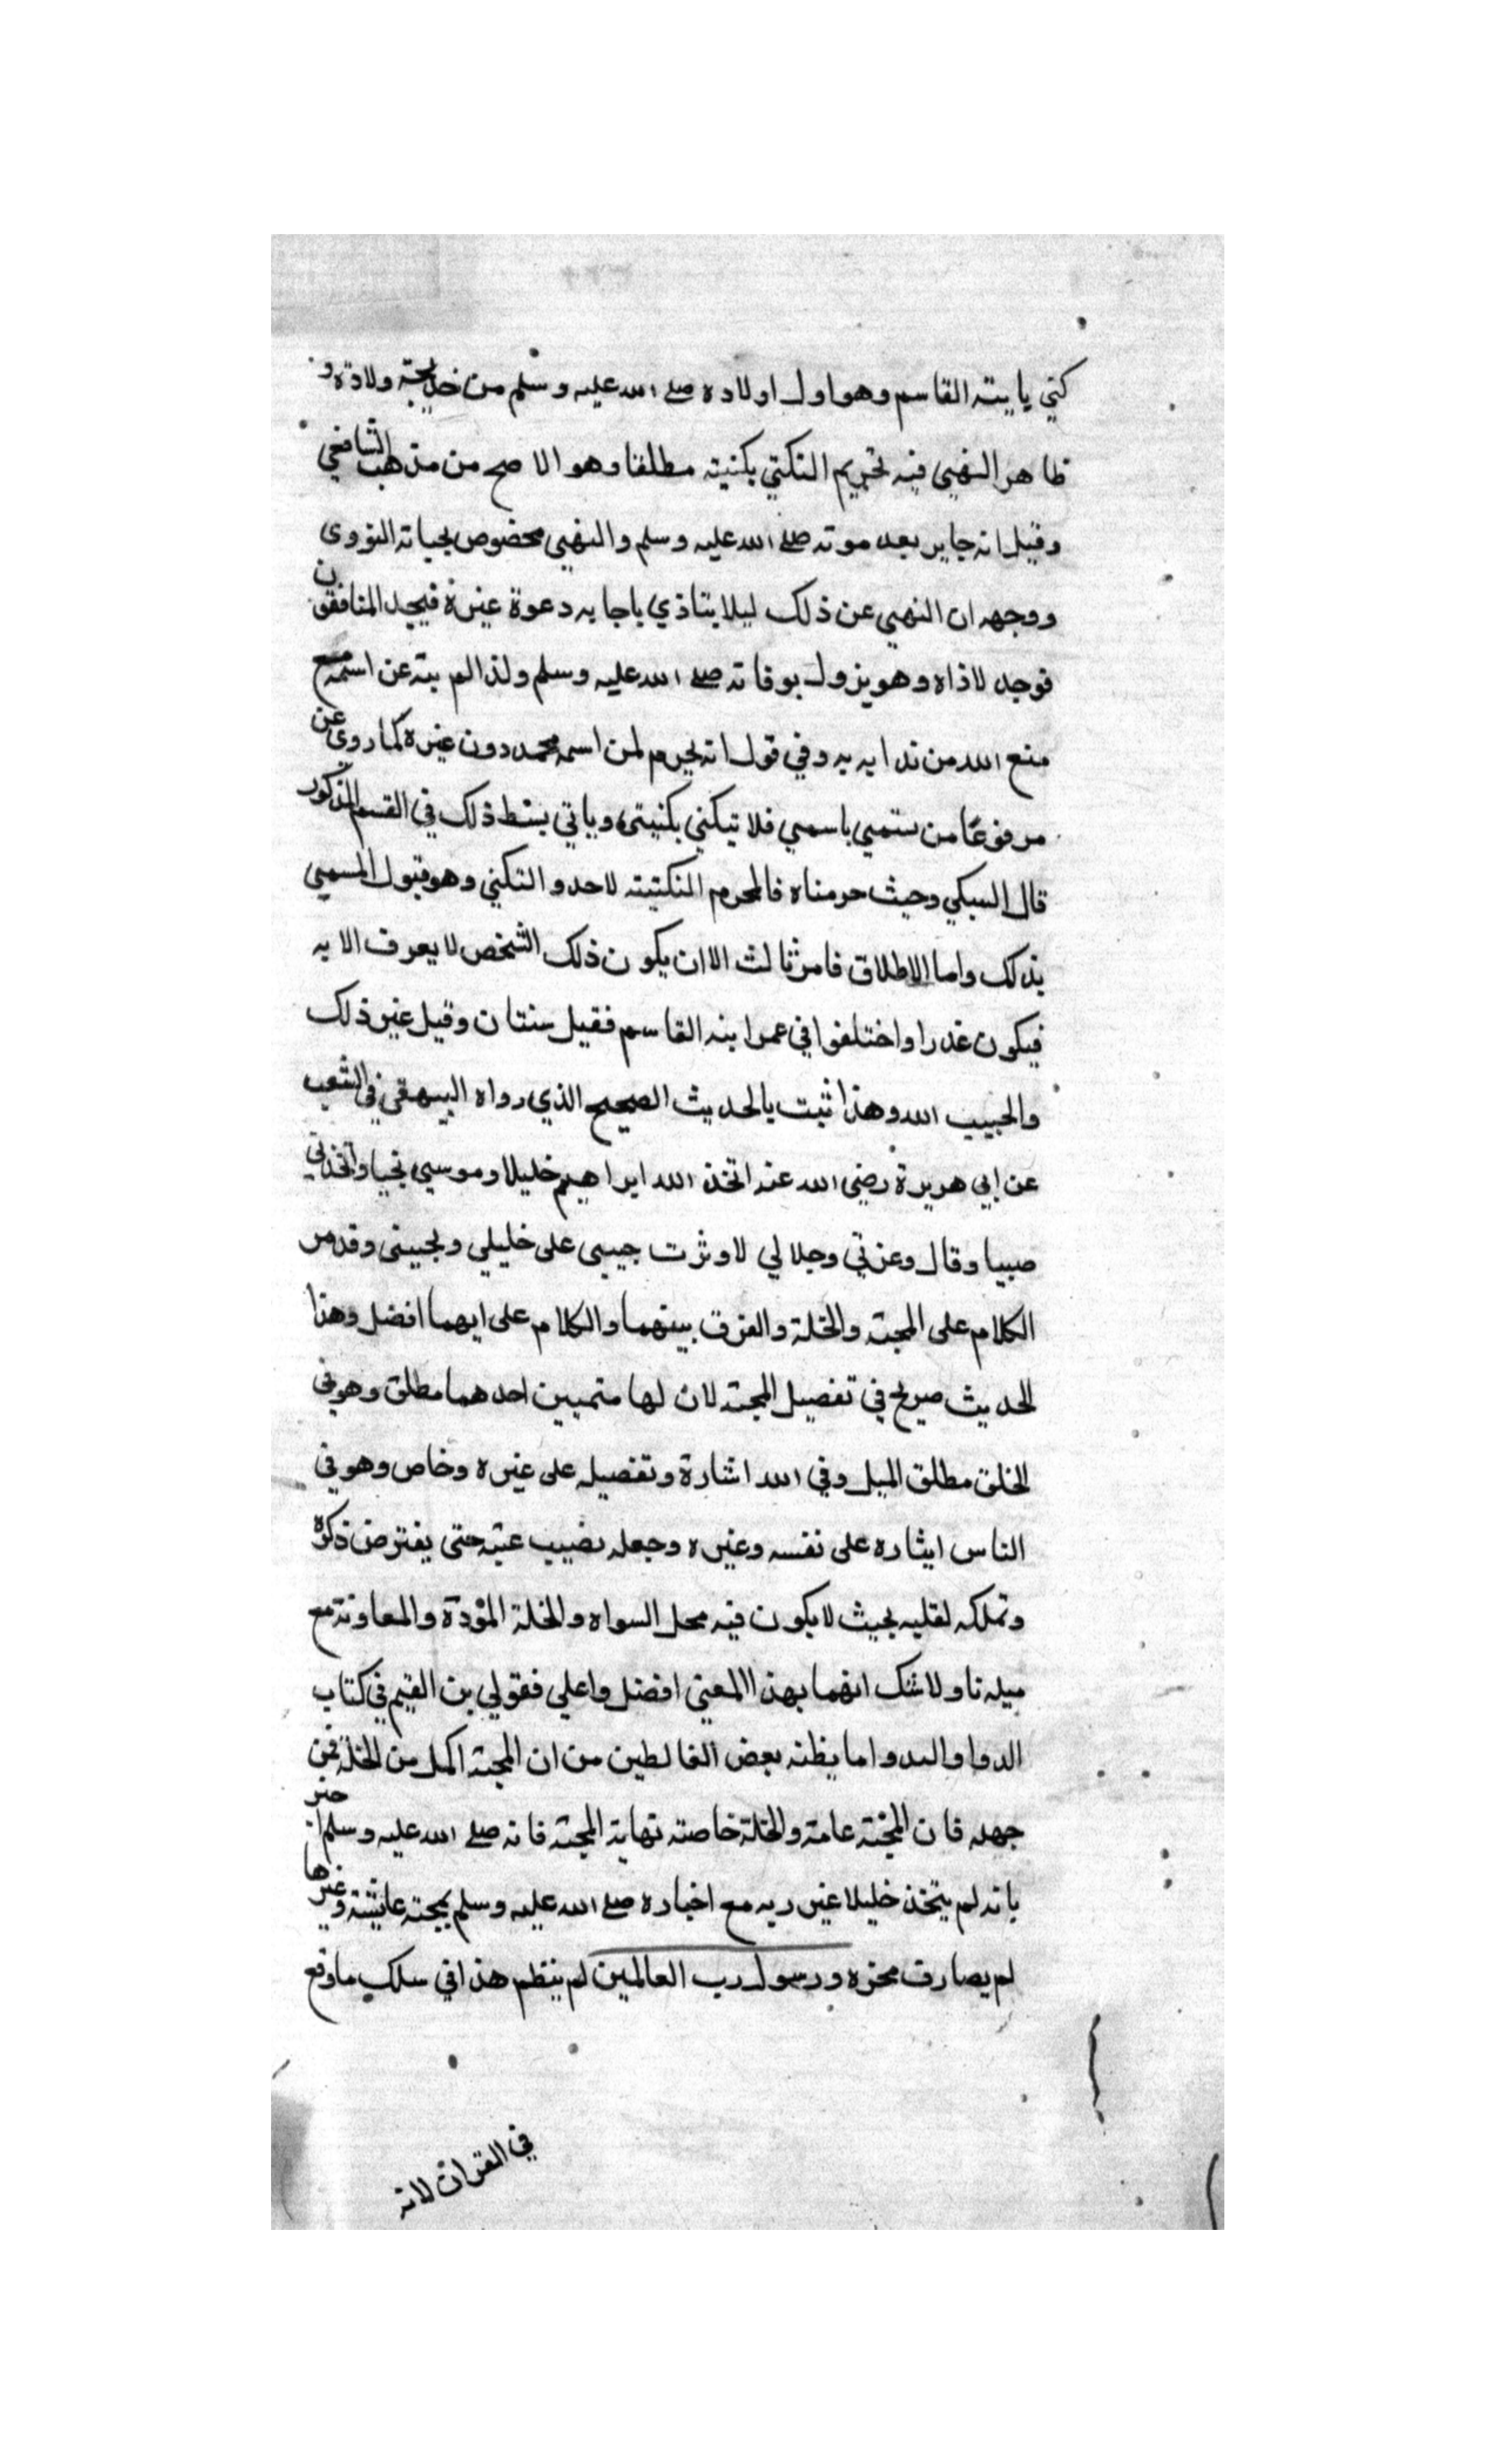 كني بابنه القاسم وهو اول اولاده صلے الله عليه وسلم من خديجة ولادة و
ظاهر النهي فيه تحريم التكني بكنيته مطلقا وهو الاصح من مذهب الشافعي
وقيل انه جايز بعد موته صلے الله عليه وسلم والنهي مخصوص بحياته النووى
ووجهه ان النهي عن ذلك ليلا يتاذي باجابه دعوة غيره فيجد المنافقون
فوجد لاذاه وهو يزول بوفاته صلے الله عليه وسلم ولذا لم ينه عن اسمه مع
منع الله من ندايه به وفي قول انه يحرم لمن اسمه محمد دون غيره كما روي عن
مرفوعًا من تسمي باسمي فلا يتكني بكنيتي وياتي بسط ذلك في القسم المذكور
قال السبكي وحيث حرمناه فالمحرم التكنية لاحد والتكني وهو قبول المسمي
بذلك واما الاطلاق فامر ثالث الا ان يكون ذلك الشخص لا يعرف الا به
فيكون عذرا واختلفوا في عمر ابنه القاسم فقيل سنتان وقيل غير ذلك
والحبيب الله وهذا ثبت بالحديث الصحيح الذي رواه البيهقي في الشعب
عن ابي هريرة رضي الله عنه اتخذ الله ابراهيم خليلا وموسي نجيا واتخذني
حبيبا وقال وعزتي وجلالي لاوثرت حبيبي على خليلي ونجيي وقد مر
الكلام على المحبة والخلة والفرق بينهما والكلام على ايهما افضل وهذا
الحديث صريح في تفضيل المحبة لان لها متميين احدهما مطلق وهو في
الخلق مطلق الميل وفي الله اشارة وتفضيله على غيره وخاص وهو في
الناس ايثاره على نفسه وغيره وجعله نصيب عينه حتى يفترض ذكره
وتملكه لقلبه بحيث لا يكون فيه محل لسواه والخلة المؤدة والمعاونة مع
ميله تا ولا شك انهما بهذا المعني افضل واعلي فقولي بن القيم في كتاب
الدوا والدوا ما يظنه بعض الغالطين من ان المحبة اكمل من الخلة فمن
جهله فان المحبة عامة والخلة خاصة نهاية المحبة فانه صلے الله عليه وسلم اخبر
بانه لم يتخذ خليلا غير ربه مع اخباره صلے الله عليه وسلم بمحبة عايشة وغيرها
لم يصارف محزه ورسول رب العالمين لم ينظم هذا في سلك ما وقع
في القران لانه